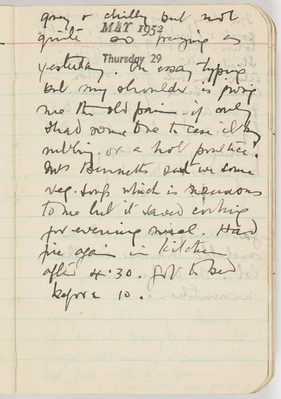 gray & chilly but not
MAY 1952
quite so freezing as
Thursday 29
yesterday. On essay typing
but my shoulder is giving
me the old pain. if only
I had some one to ease it by
rubbing. or a hot poultice!
Mrs Bennetts sent in some
veg. soup which is
to me but it saved cooking
for evening meal. Had
fire again in kitchen
after 4.30. Got to bed
before 10.